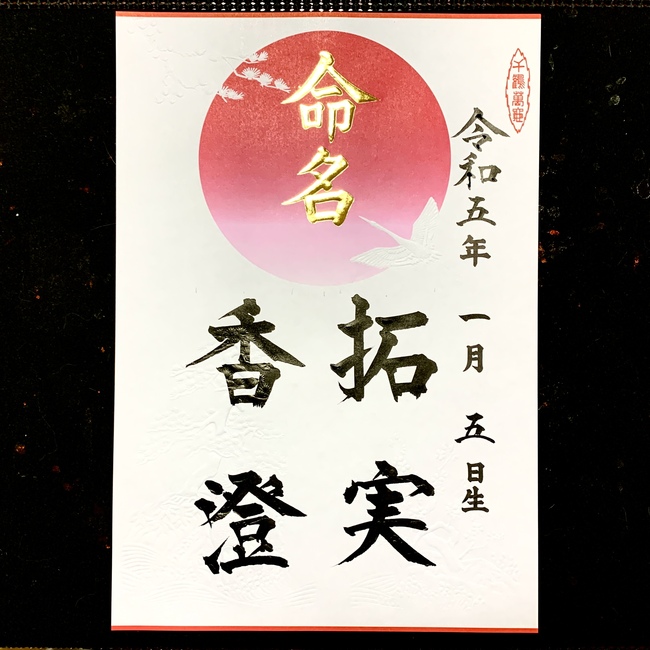 千鶴萬亀
令和五年 一月 五日生
命名
拓実
香澄